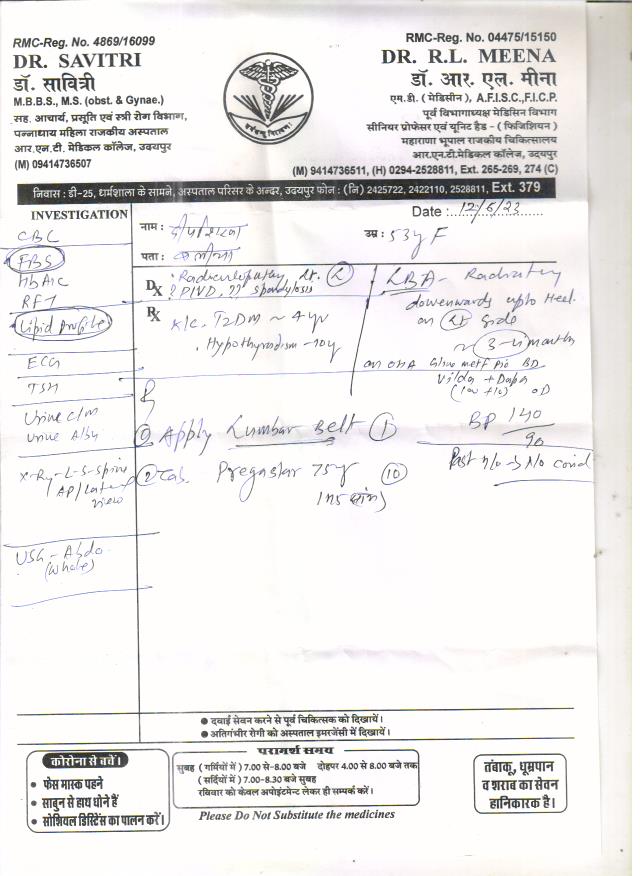 RMC-Reg. No. 4869/16099
DR. SAVITRI
डॉ. सावित्री
M.B.B.S., M.S. (obst. & Gynae.)
सह. आचार्य, प्रसूति एवं स्त्री रोग विभाग,
पन्नाधाय महिला राजकीय अस्पताल
आर.एन.टी. मेडिकल कॉलेज, उदयपुर
(M) 09414736507
RMC-Reg. No. 04475/15150
DR. R.L. MEENA
डॉ. आर. एल. मीना
एम.डी. ( मेडिसीन ), A.F.I.S.C.,F.I.C.P.
पूर्व विभागाध्यक्ष मेडिसिन विभाग
सीनियर प्रोफेसर एवं यूनिट हैड - ( फिजिशियन )
महाराणा भूपाल राजकीय चिकित्सालय
आर.एन.टी.मेडिकल कॉलेज, उदयपुर
(M) 9414736511, (H) 0294-2528811, Ext. 265-269, 274 (C)
निवास : डी-25, धर्मशाला के सामने, अस्पताल परिसर के अन्दर, उदयपुर फोन : (नि) 2425722, 2422110, 2528811, Ext. 379
INVESTIGATION
CBC
FBS
HbA1c
RFT
Lipid Profile
ECG
TSH
Urine C/M
Urine Alb
X-Ray-L-S-Spine
(AP/Lateral
view)
USG-Abdo
(Whole)
Date : 12/6/23
नाम :
उम्र : 53y F
पता :
DX Radiculopathy, Lt. L
? PIVD, ?? Spondylosis
RX K/C. T2DM ~ 4 yr
Hypothyroidism - 10y
LBA - Radiating
downwards upto Heel
on Lt Side
~ 3-4 months
on OHA Glimo metf pio BD
Vilda + Dapa
OD
BP 140
90
Past h/o → h/o covid
① Apply Lumbar Belt ①
② Tab. Pregastar 75 ⑩
● दवाई सेवन करने से पूर्व चिकित्सक को दिखायें।
● अतिगंभीर रोगी को अस्पताल इमरजेंसी में दिखायें।
कोरोना से बचें।
• फेस मास्क पहने
• साबुन से हाथ धोने हैं
• सोशियल डिस्टेंस का पालन करें।
परामर्श समय
सुबह ( गर्मियों में ) 7.00 से-8.00 बजे दोहपर 4.00 से 8.00 बजे तक
( सर्दियों में ) 7.00-8.30 बजे सुबह
रविवार को केवल अपोइंटमेन्ट लेकर ही सम्पर्क करें।
Please Do Not Substitute the medicines
तंबाकू, धूम्रपान
व शराब का सेवन
हानिकारक है।